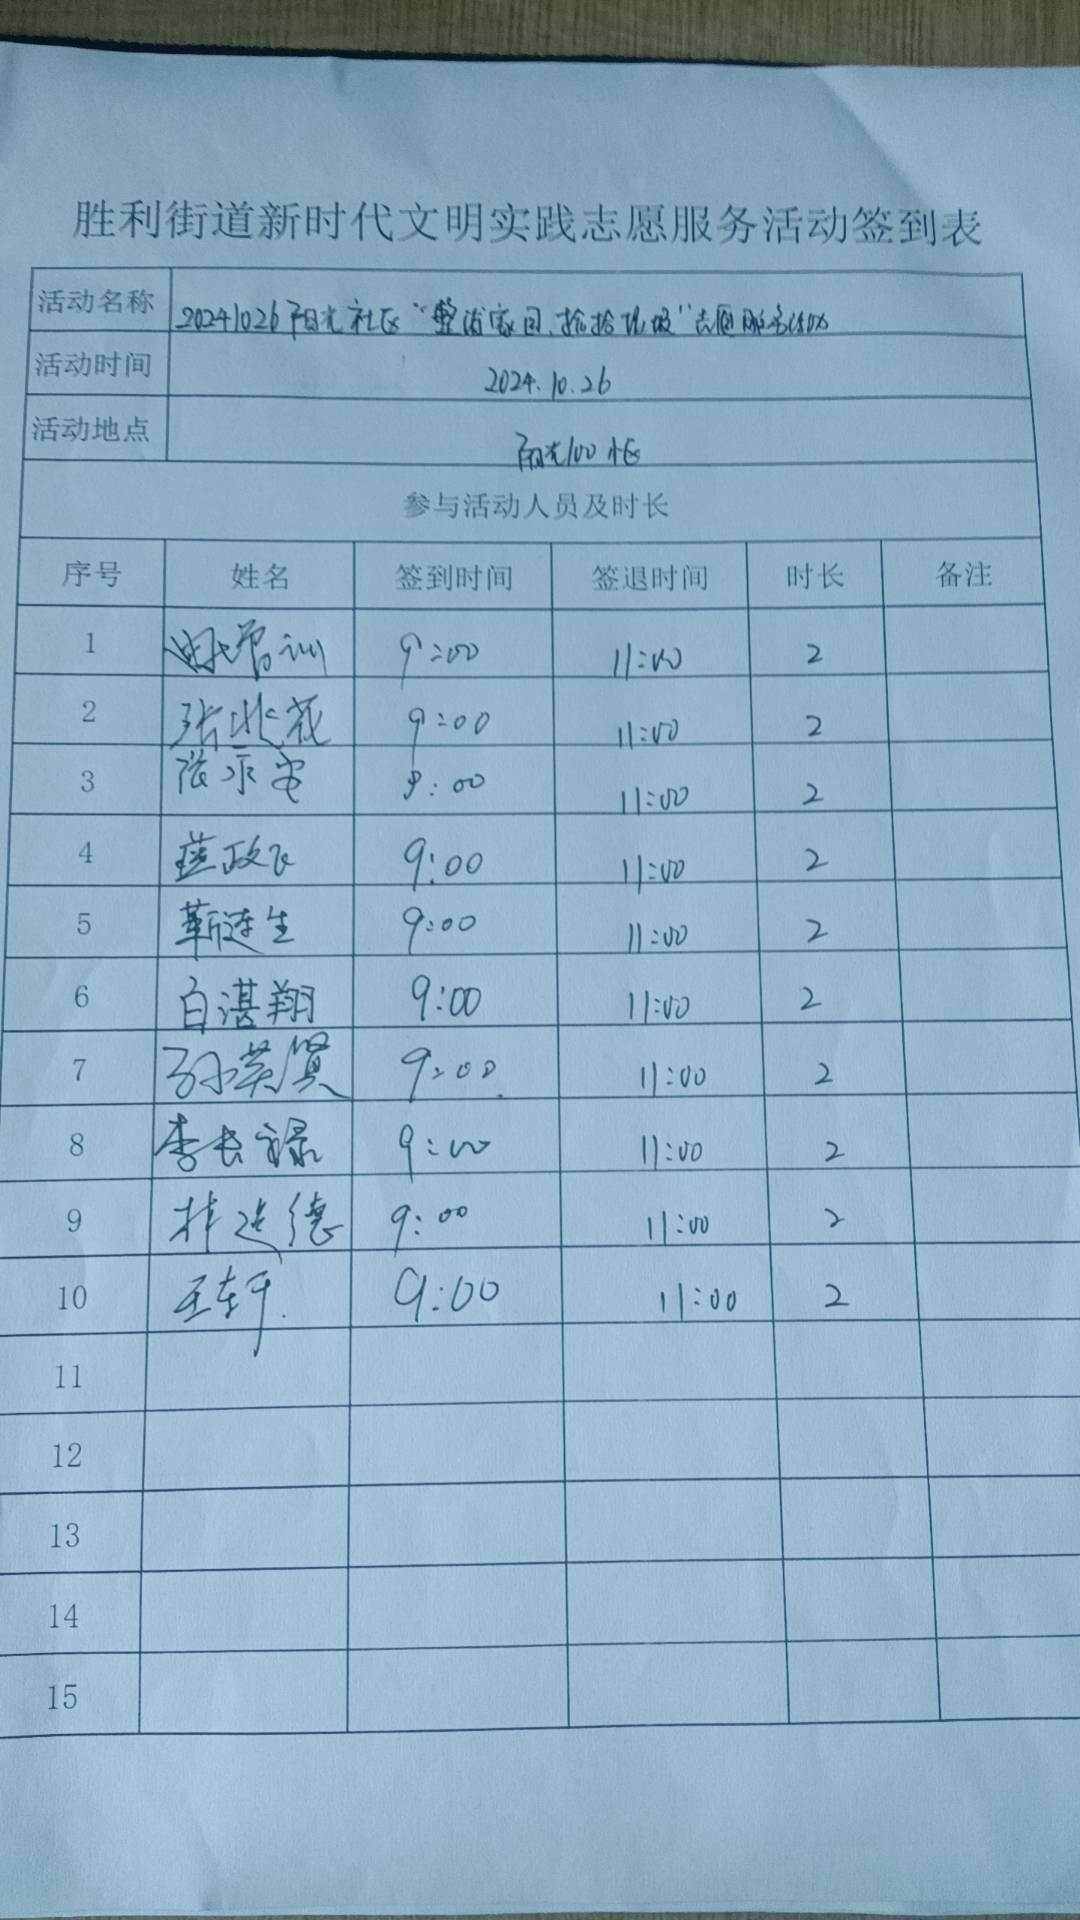 胜利街道新时代文明实践志愿服务活动签到表
活动名称 20241026阳光社区“整洁家园,捡拾垃圾”志愿服务活动
活动时间 2024.10.26
活动地点 阳光100小区
参与活动人员及时长
序号 姓名 签到时间 签退时间 时长 备注
1 9:00 11:00 2
2 张兆花 9:00 11:00 2
3 张永安 9:00 11:00 2
4 9:00 11:00 2
5 靳连生 9:00 11:00 2
6 白湛翔 9:00 11:00 2
7 孙英贤 9:00 11:00 2
8 李长禄 9:00 11:00 2
9 9:00 11:00 2
10 王东平 9:00 11:00 2
11
12
13
14
15